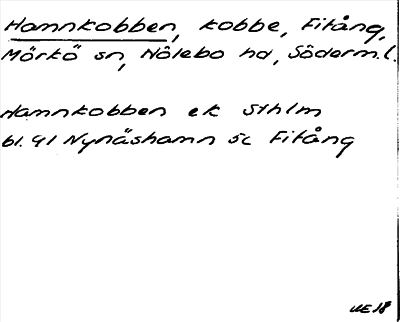 Hamnkobben, kobbe, Fifång,
Mörkö sn, Hölebo hd, Söderm.l.
Hamnkobben ek Sthlm
bl. 41 Nynäshamn 5c Fifång